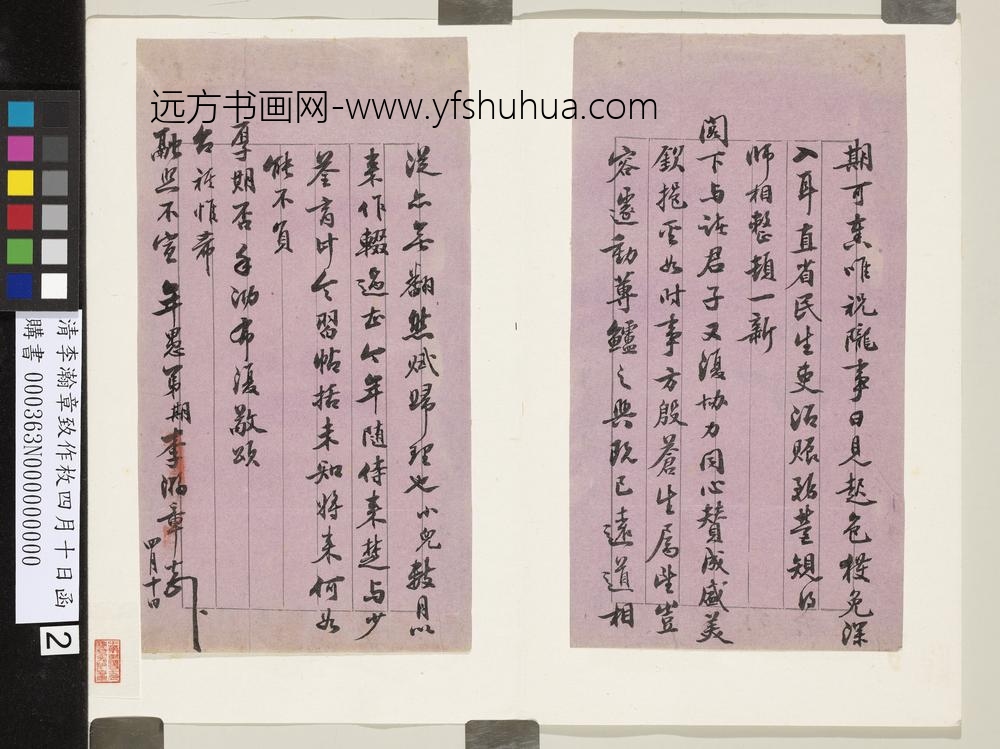 远方书画网-www.yfshuhua.com
期可奏唯祝隴事日見起色權免深
入耳直省民生吏治賑務
師相整頓一新
閣下與諸君子又復協力同心贊成盛美
欽挹奚如时事方殷蒼生屬望豈
容遽動蓴鱸之興既已遠道相
從亦無翻然賦歸理也小兒數月以
來作輟過世今年隨侍来楚与少
荃育此今習帖括未知將来何如
能不負
厚期否手泐布復敬頌
台祺惟希
融照不宣 年愚弟期李瀚章
四月十日
清李瀚章致作枚四月十日函
購書 000363N000000000
2